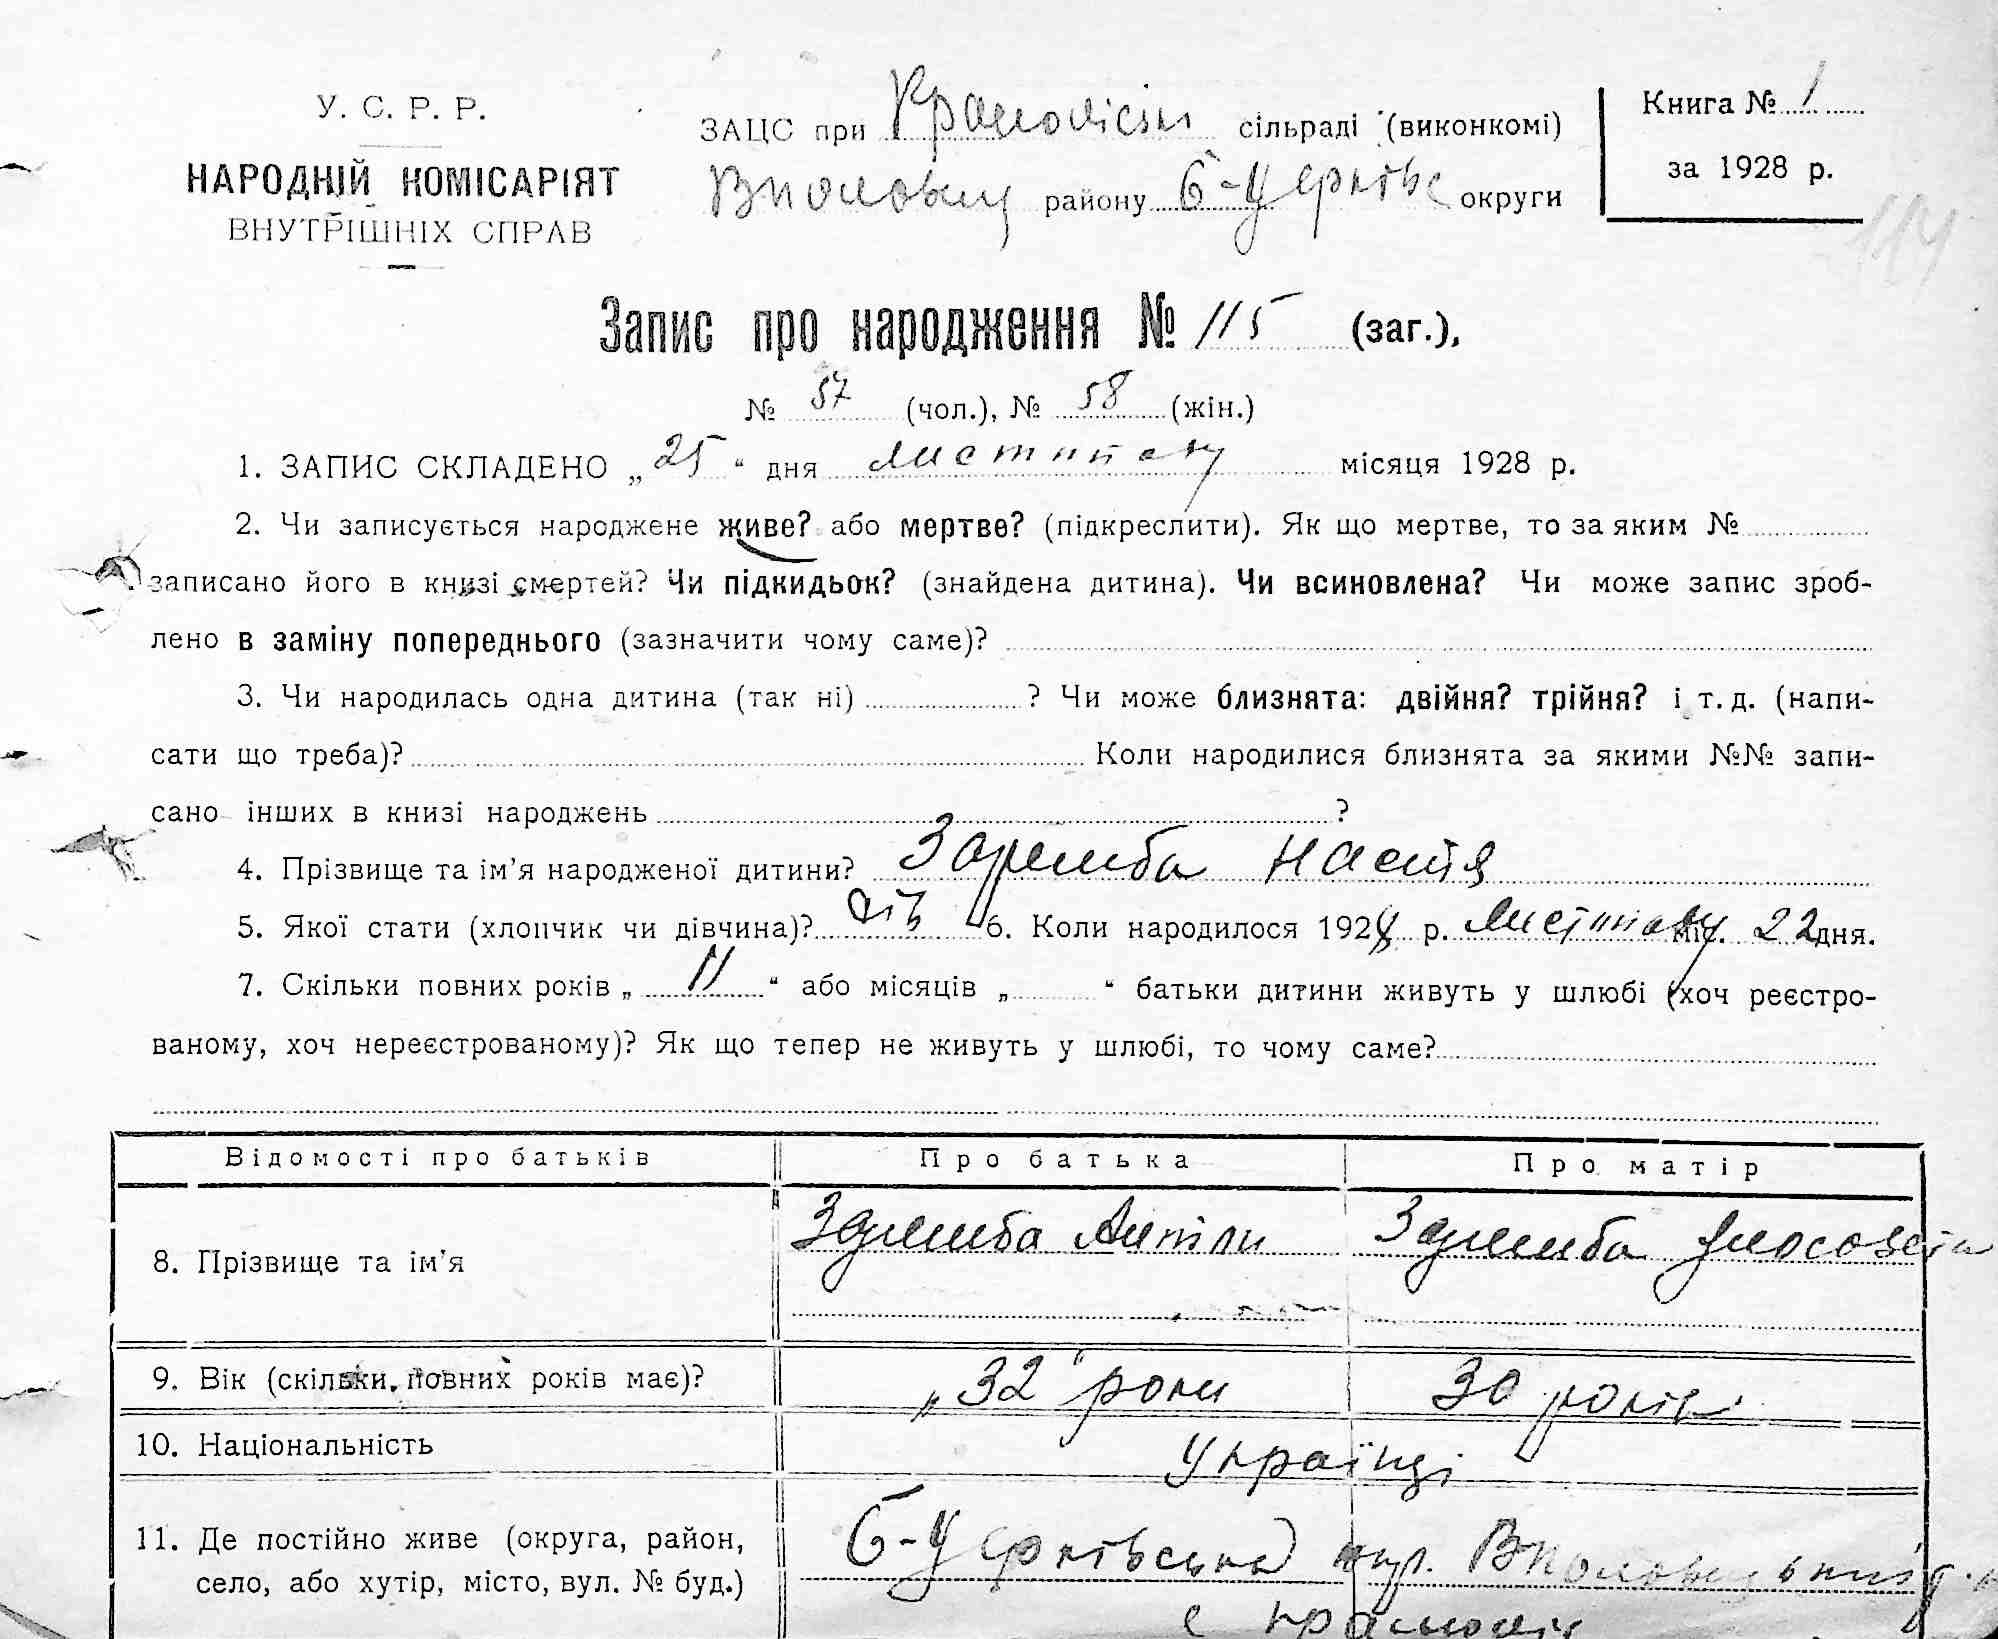 У. С. Р. Р.
НАРОДНІЙ КОМІСАРІЯТ
ВНУТРІШНІХ СПРАВ
ЗАЦС при сільраді (виконкомі)
району Б-Церківс округи
Книга № 1
за 1928 р.
Запис про народження № 115 (заг.),
№ 57 (чол.), № 58 (жін.)
1. ЗАПИС СКЛАДЕНО „ 25 “ дня листопаду місяця 1928 р.
2. Чи записується народжене живе? або мертве? (підкреслити). Як що мертве, то за яким №
записано його в книзі смертей? Чи підкидьок? (знайдена дитина). Чи всиновлена? Чи може запис зроб-
лено в заміну попереднього (зазначити чому саме)?
3. Чи народилась одна дитина (так ні) ? Чи може близнята: двійня? трійня? і т. д. (напи-
сати що треба)? Коли народилися близнята за якими №№ запи-
сано інших в книзі народжень ?
4. Прізвище та ім’я народженої дитини? Заремба Настя
5. Якої стати (хлопчик чи дівчина)? дів 6. Коли народилося 1928 р. листопаду міс. 22 дня.
7. Скільки повних років „ 11 “ або місяців „ “ батьки дитини живуть у шлюбі (хоч реєстро-
ваному, хоч нереєстрованому)? Як що тепер не живуть у шлюбі, то чому саме?
Відомості про батьків Про батька Про матір
8. Прізвище та ім’я Заремба Заремба
9. Вік (скільки повних років має)? „32“ роки 30 років
10. Національність Українці
11. Де постійно живе (округа, район,
село, або хутір, місто, вул. № буд.)
Б-Церківська
с